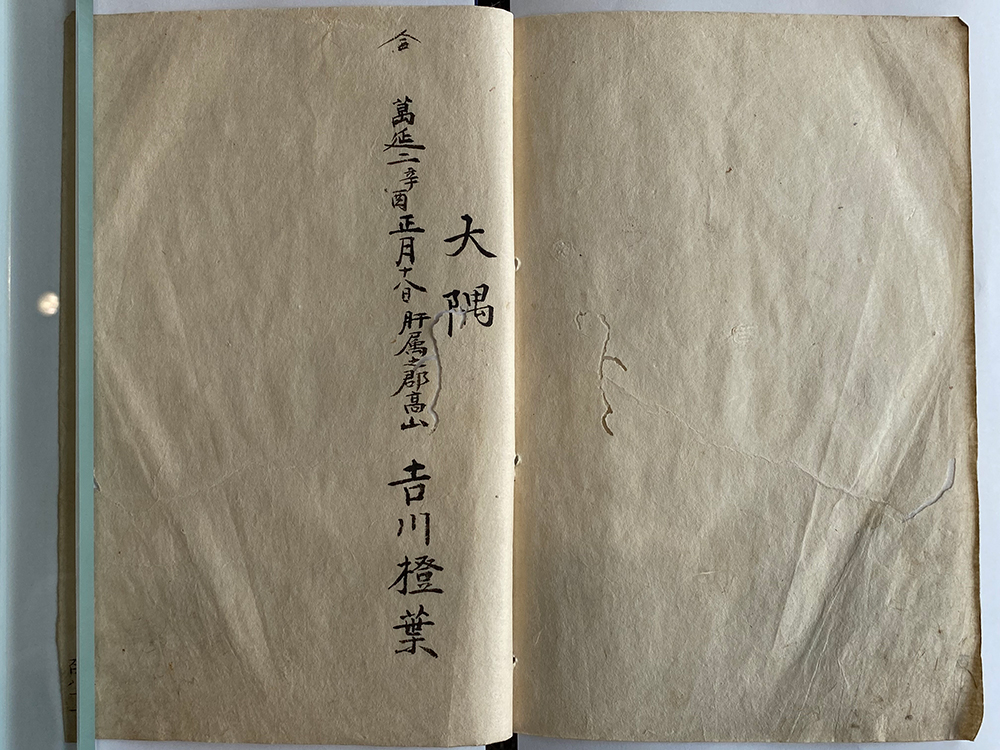 大隅
合 萬延二辛酉正月十八日 肝属之郡高山 吉川橙葉